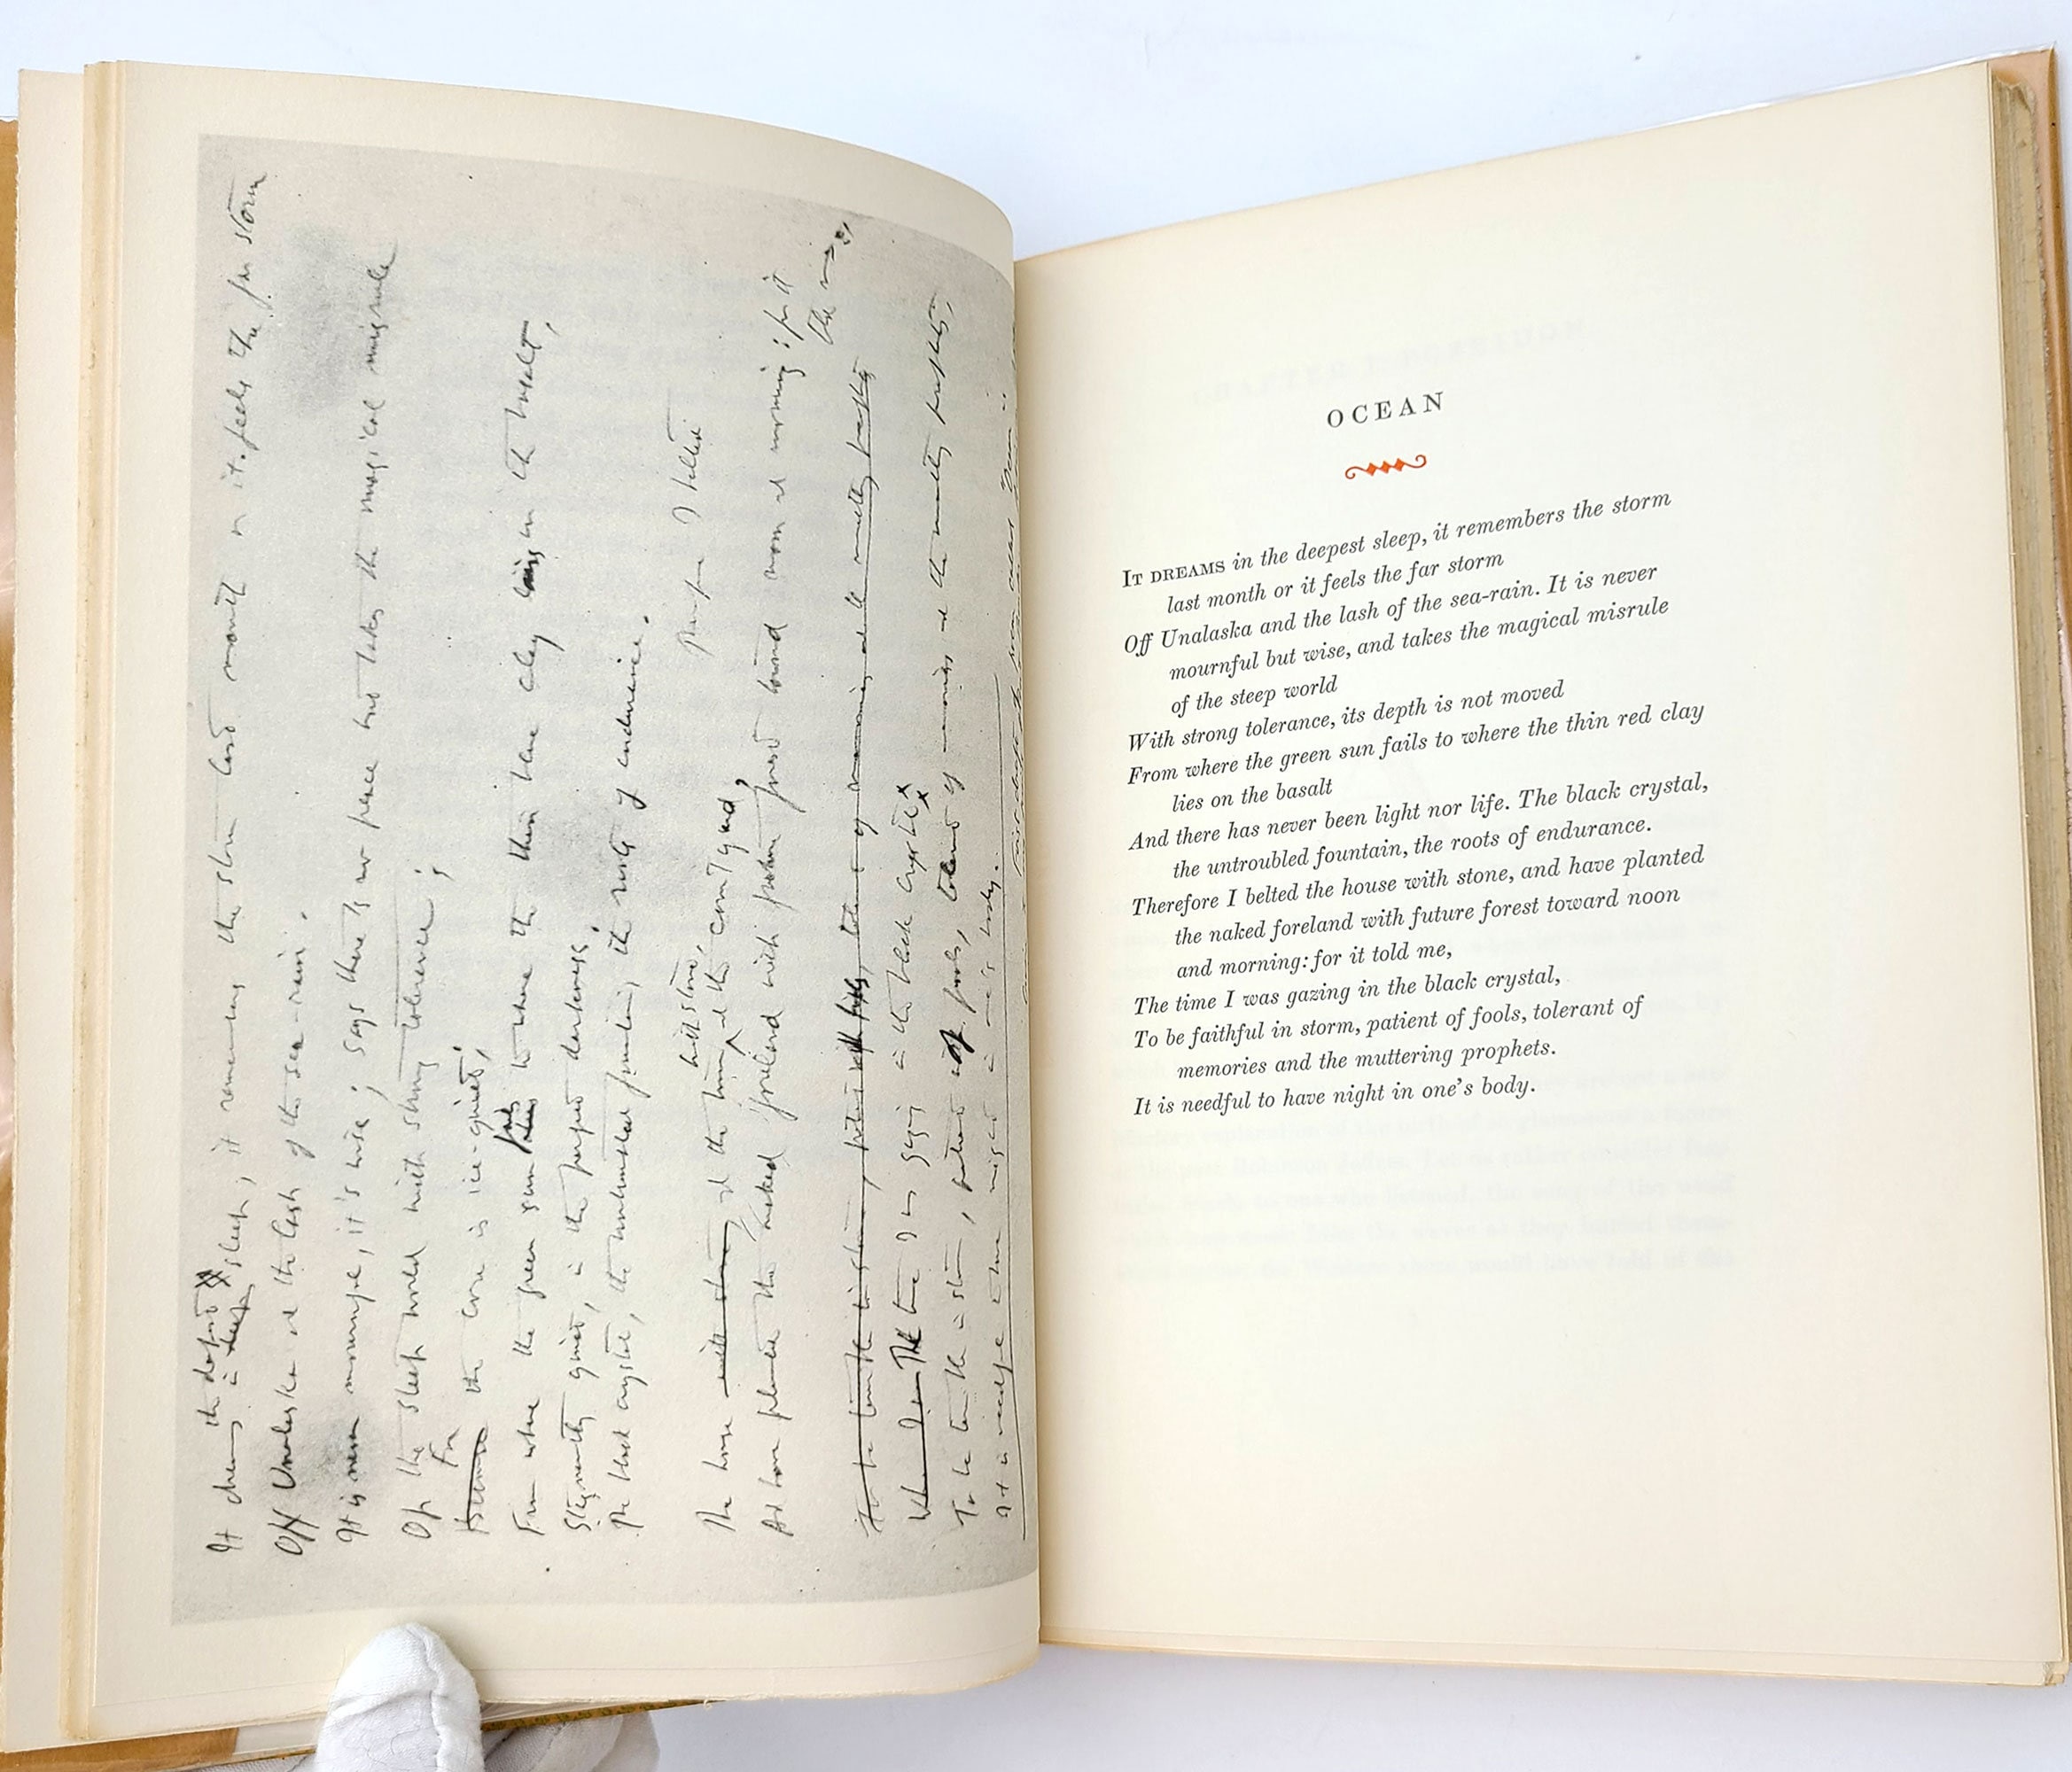 It dreams in the deepest sleep, it remembers the storm last month or it feels the far storm
Off Unalaska and the lash of the sea-rain.
It is never mournful, it's wise; says there is no peace but takes the magical misrule
Of the steep world with strong tolerance;
For the core is ice-quiet,
From where the green sun fails to where the thin clay lies on the basalt,
quiet, in the perfect darkness,
The black crystal, the untroubled fountain, the roots of endurance.
Therefore I belted
The house with stone, and the courtyard,
And have planted the naked foreland with future forest toward noon and morning: for it
The time I was gazing in the black crystal
To be in storm, patient of fools, tolerant of memories and the muttering prophets,
It is needful to have night in one's body.
OCEAN
IT DREAMS in the deepest sleep, it remembers the storm
last month or it feels the far storm
Off Unalaska and the lash of the sea-rain. It is never
mournful but wise, and takes the magical misrule
of the steep world
With strong tolerance, its depth is not moved
From where the green sun fails to where the thin red clay
lies on the basalt
And there has never been light nor life. The black crystal,
the untroubled fountain, the roots of endurance.
Therefore I belted the house with stone, and have planted
the naked foreland with future forest toward noon
and morning: for it told me,
The time I was gazing in the black crystal,
To be faithful in storm, patient of fools, tolerant of
memories and the muttering prophets.
It is needful to have night in one's body.